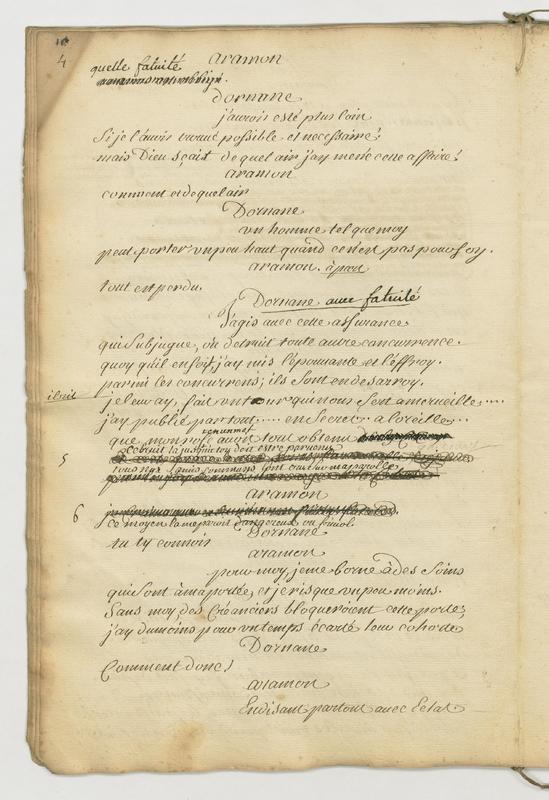 4
aramon
quelle fatuité
Dornane
j'aurois esté plus loin
Si je l'avois trouvé possible et necessaire!
mais Dieu sçait de quel air j'ay mené cette affaire!
aramon
comment et de quel air
Dornane
un homme tel que moy
peut porter un peu haut quand ce n'est pas pour soy.
aramon. à part
tout est perdu.
Dornane avec fatuité
J'agis avec cette assurance
qui Subjugue, ou detruit toute autre concurrence.
quoy qu'il en soit, j'ay mis l'épouvante et l'effroy.
parmi les concurrens; ils sont en desarroy.
je leur ay, fait un tour qui nous sert a merveille....
j'ay publié par tout.... en Secret.. a l'oreille...
que monrose avoit tout obtenu
le bruit
5
tous nos
aramon
6
ce moyen la me paroit dangereux ou frivol.
Dornane
tu ty connois
aramon
pour moy, je me borne à des Soins
qui sont à ma portée, et je risque un peu moins.
Sans moy des Créanciers bloqueroient cette porte;
j'ay du moins pour un temps écarté leur cohorte
Dornane
Comment donc!
aramon
En disant partout avec Eclat